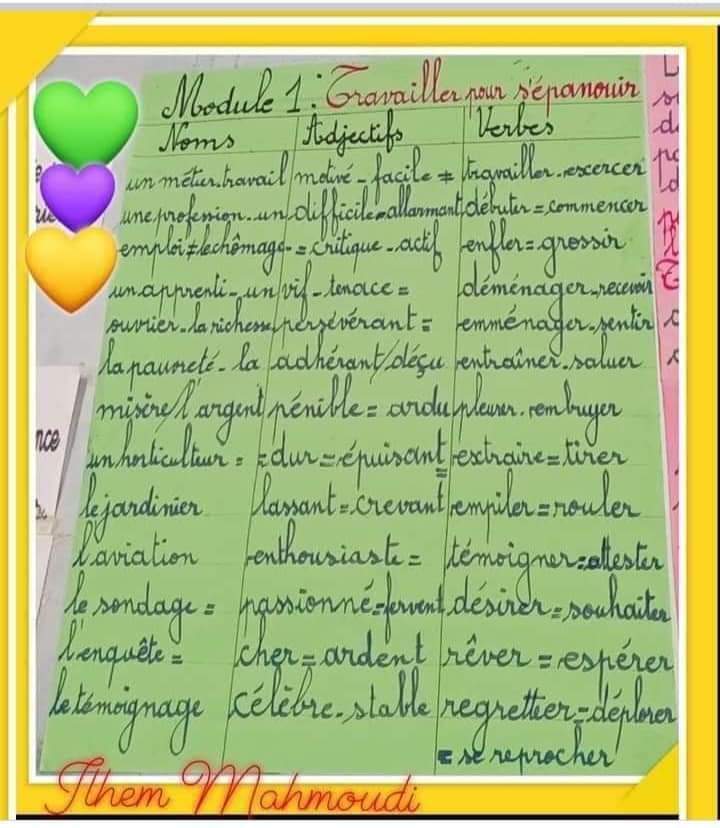 Module 1: Travailler pour s'épanouir
Noms Adjectifs Verbes
un métier. travail motivé - facile ≠ travailler. escercer
une profession. un difficile = allarmant débuter = commencer
emploi ≠ le chômage = critique - actif enfler = grossir
un apprenti - un vif - tenace = déménager - recevoir
ouvrier - la richesse persévérant = emménager - sentir
la pauvreté - la adhérant/déçu entraîner. saluer
misère/l'argent pénible = ardu pleurer. rembuyer
un horticulteur = = dur = épuisant extraire = tirer
le jardinier lassant = crevant empiler = rouler
l'aviation enthousiaste = témoigner = attester
le sondage = passionné = fervent désirer = souhaiter
l'enquête = cher = ardent rêver = espérer
le témoignage célèbre - stable regrettier = déplorer
= se reprocher
nce
Ilhem Mahmoudi